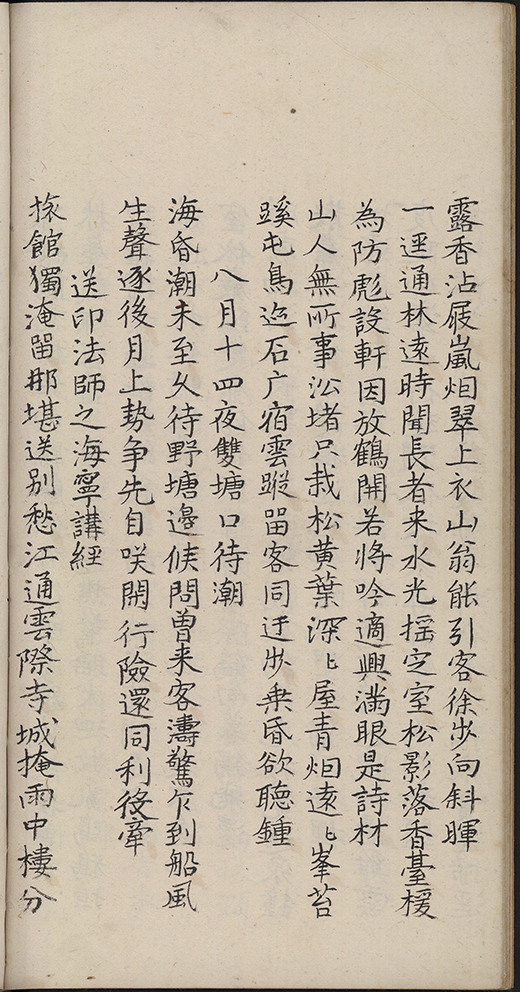 露香沾屐嵐烟翠上衣山翁能引客徐步向斜暉
一逕通林遠時聞長者来水光揺定室松影落香臺椶
為防彪設軒因放鶴開若将吟適興滿眼是詩材
山人無所事沿堵只栽松黄葉深〻屋青烟遠〻峯苔
蹊屯鳥迹石广宿雲蹤畱客同迂步乗昏欲聴鍾
八月十四夜雙塘口待潮
海昏潮未至久待野塘邊候問曽来客濤驚乍到船風
生聲逐後月上勢争先自咲閑行險還同利役牽
送印法師之海寧講經
旅館獨淹畱那堪送别愁江通雲際寺城掩雨中樓分